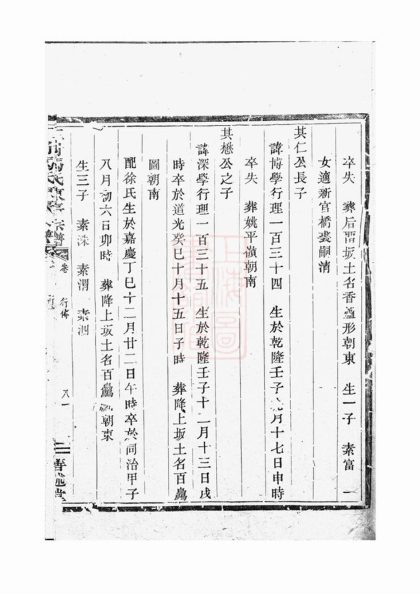 卒失 葬后畱坂土名香爐形朝東 生一子 素富 一
女適新官橋裘嗣清
其仁公長子
諱博學行理一百三十四 生於乾隆壬子 月十七日申時
卒失 葬姚平嶺朝南
其懋公之子
諱深學行理一百三十五 生於乾隆壬子十二月十三日戌
時卒於道光癸巳十月十五日子時 葬降上坂土名百鳥
圖朝南
配徐氏生於嘉慶丁巳十二月廿二日午時卒於同治甲子
八月初六日卯時 葬降上坂土名百鳥 朝東
生三子 素 素渭 素泗
馮氏 宗譜
卷 行傳
八一